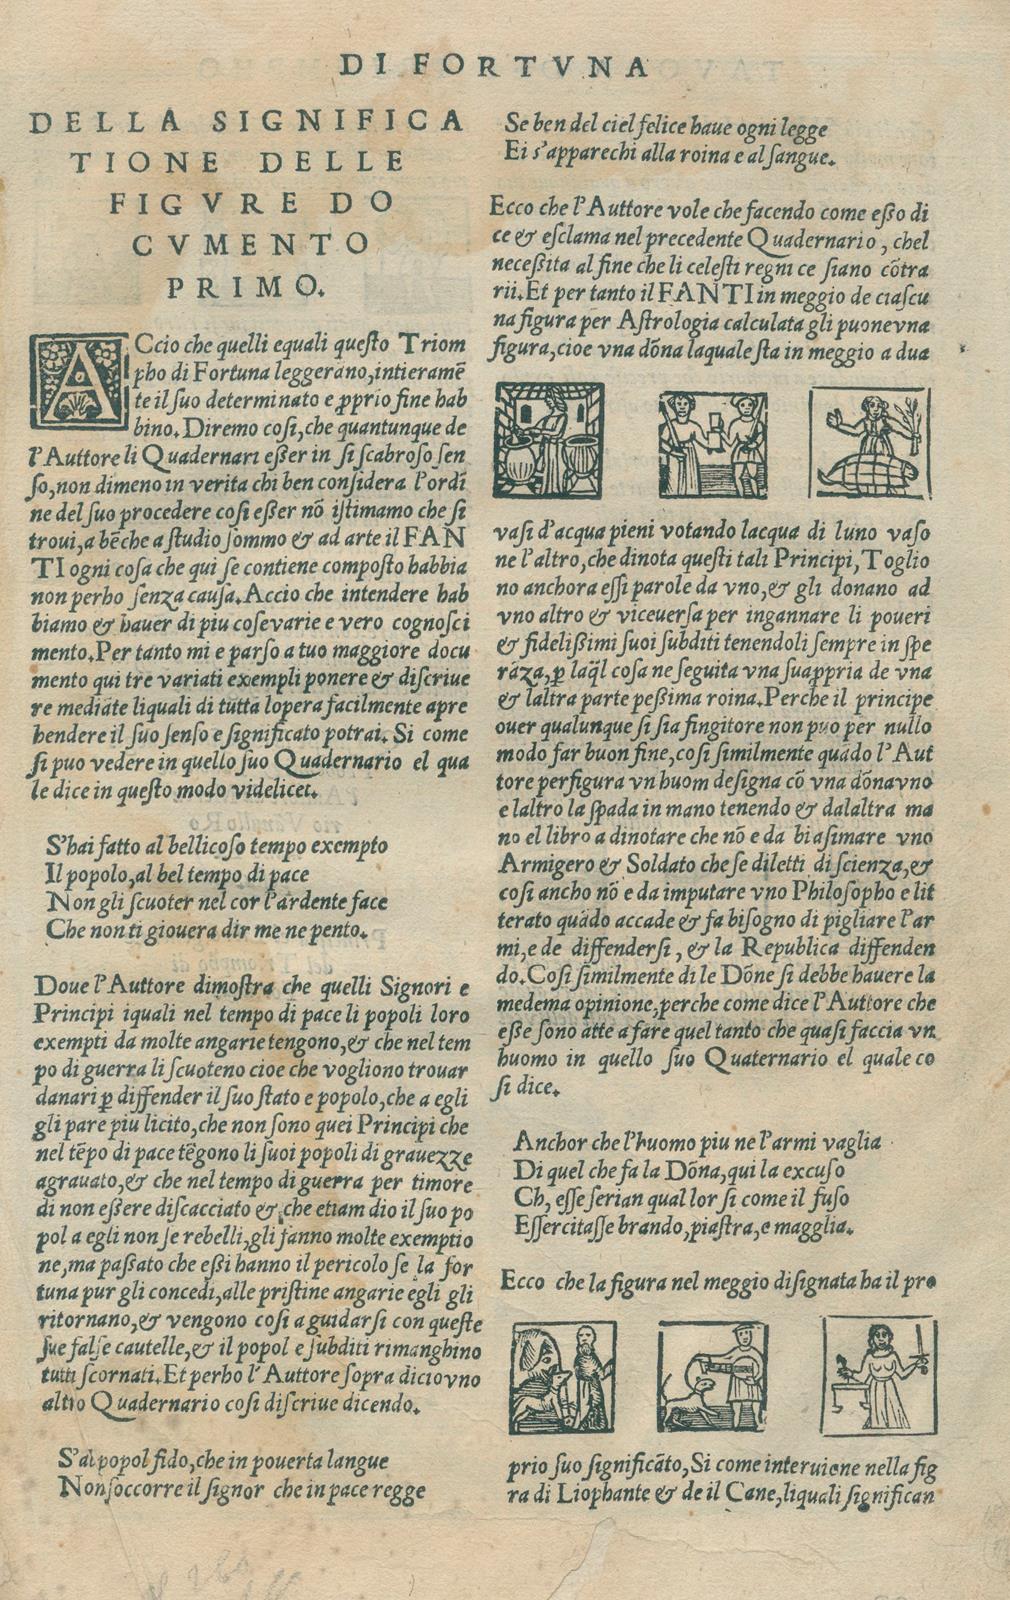 DI FORTVNA
DELLA SIGNIFICA
TIONE DELLE
FIGVRE DO
CVMENTO
PRIMO.
ACcio che quelli equali questo Triom
pho di Fortuna leggerano,intieramẽ
te il suo determinato e ꝓprio fine hab
bino.Diremo cosi,che quantunque de
l'Auttore li Quadernari esser in si scabroso sen
so,non dimeno in verita chi ben considera l'ordi
ne del suo procedere cosi esser nõ istimamo che si
troui,a bẽche a studio sommo & ad arte il FAN
TI ogni cosa che qui se contiene composto habbia
non perho senza causa.Accio che intendere hab
biamo & hauer di piu cose varie e vero cognosci
mento.Per tanto mi e parso a tuo maggiore docu
mento qui tre variati exempli ponere & discriue
re mediãte liquali di tutta lopera facilmente apre
hendere il suo senso e significato potrai. Si come
si puo vedere in quello suo Quadernario el qua
le dice in questo modo videlicet.
S'hai fatto al bellicoso tempo exempto
Il popolo,al bel tempo di pace
Non gli scuoter nel cor l'ardente face
Che non ti giouera dir me ne pento.
Doue l'Auttore dimostra che quelli Signori e
Principi iquali nel tempo di pace li popoli loro
exempti da molte angarie tengono,& che nel tem
po di guerra li scuoteno cioe che vogliono trouar
danari ꝑ diffender il suo stato e popolo,che a egli
gli pare piu licito,che non sono quei Principi che
nel tẽpo di pace tẽgono li suoi popoli di grauezze
agrauato,& che nel tempo di guerra per timore
di non essere discacciato & che etiam dio il suo po
pol a egli non se rebelli,gli fanno molte exemptio
ne,ma passato che essi hanno il pericolo se la for
tuna pur gli concedi,alle pristine angarie egli gli
ritornano,& vengono cosi a guidarsi con queste
sue false cautelle,& il popol e subditi rimanghino
tutti scornati.Et perho l'Auttore sopra dicio vno
altro Quadernario cosi discriue dicendo.
S'al popol fido,che in pouerta langue
Non soccorre il signor che in pace regge
Se ben del ciel felice haue ogni legge
Ei s'apparechi alla roina e al sangue.
Ecco che l'Auttore vole che facendo come esso di
ce & esclama nel precedente Quadernario, chel
necessita al fine che li celesti regni ce siano cõtra
rii.Et per tanto il FANTI in meggio de ciascu
na figura per Astrologia calculata gli puone vna
figura,cioe vna dõna laquale sta in meggio a dua
vasi d'acqua pieni votando lacqua di luno vaso
ne l'altro,che dinota questi tali Principi, Toglio
no anchora essi parole da vno,& gli donano ad
vno altro & viceuersa per ingannare li poueri
& fidelissimi suoi subditi tenendoli sempre in spe
rãza,ꝑ laq̃l cosa ne seguita vna sua ppria de vna
& laltra parte pessima roina.Perche il principe
ouer qualunque si sia fingitore non puo per nullo
modo far buon fine,cosi similmente quãdo l'Aut
tore per figura vn huom designa cõ vna dõna vno
e laltro la spada in mano tenendo & dalaltra ma
no el libro a dinotare che nõ e da biasimare vno
Armigero & Soldato che se diletti di scienza,&
cosi ancho nõ e da imputare vno Philosopho e lit
terato quãdo accade & fa bisogno di pigliare l'ar
mi,e de diffendersi, & la Republica diffenden
do.Cosi similmente di le Dõne si debbe hauere la
medema opinione,perche come dice l'Auttore che
esse sono atte a fare quel tanto che quasi faccia vn
huomo in quello suo Quaternario el quale co
si dice.
Anchor che l'huomo piu ne l'armi vaglia
Di quel che fa la Dõna,qui la excuso
Ch, esse serian qual lor si come il fuso
Essercitasse brando,piastra,e magglia.
Ecco che la figura nel meggio disignata ha il pro
prio suo significãto,Si come interuiene nella fig
ra di Liophante & de il Cane,liquali significan